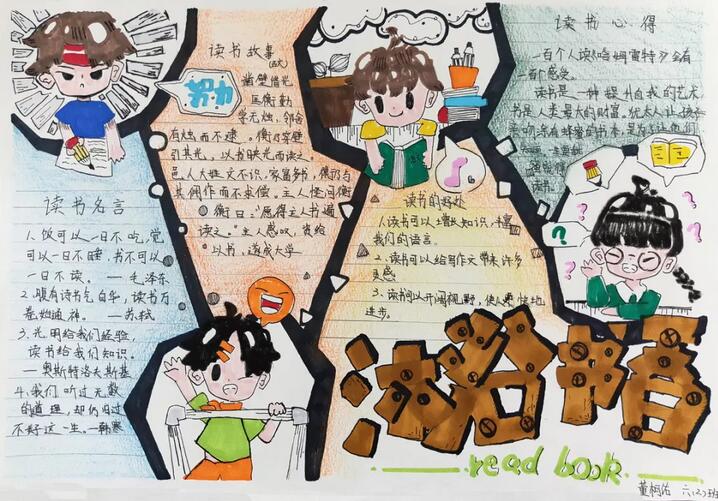 读书故事
努力
凿壁借光
匡衡勤
学无烛，邻舍
有烛而不逮。衡乃穿壁
引其光，以书映光而读之。
邑人大姓文不识，家富多书，衡乃与
其佣作而不求偿。主人怪问衡
衡曰：“愿得主人书遍
读之。”主人感叹，资给
以书，遂成大学
读书名言
1.饭可以一日不吃，觉
可以一日不睡，书不可以
一日不读。 —毛泽东
2.腹有诗书气自华，读书万
卷始通神。 —苏轼
3.光明给我们经验，
读书给我们知识。
—奥斯特洛夫斯基
4.我们听过无数
的道理，却仍旧过
不好这一生。—韩寒
读书的好处
1.读书可以增长知识，丰富
我们的语言。
2.读书可以给写作文带来许多
灵感
3.读书可以开阔视野，使人更快地
进步。
读书心得
一百个人读《哈姆雷特》会有
一百个感受。
读书是一种提升自我的艺术
书是人类最大的财富。犹太人让孩子
亲吻涂有蜂蜜的书本，是为让他们
读书。
沐浴书香
read book
六(2)班